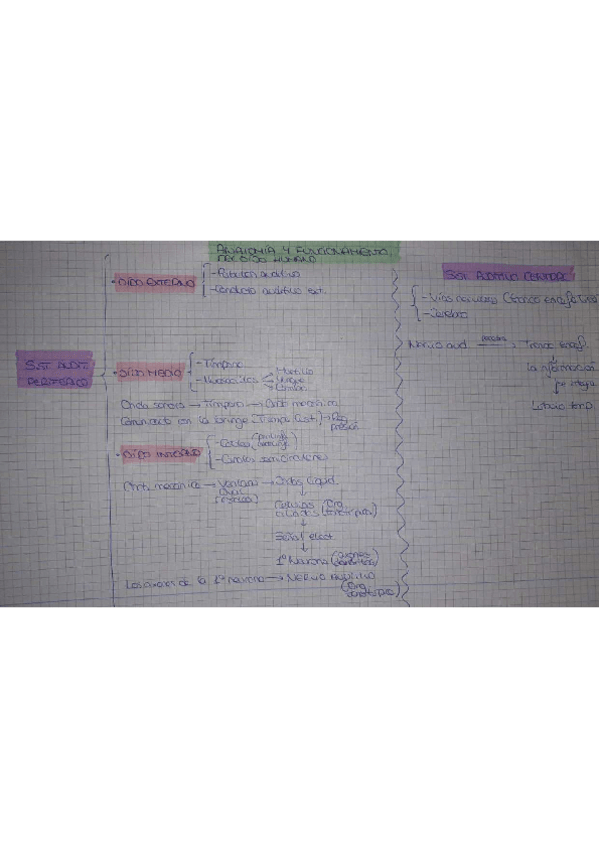 ANATOMÍA Y FUNCIONAMIENTO
DEL OÍDO HUMANO
SIST. AUDIT.
PERIFÉRICO
• OÍDO EXTERNO
- Pabellón auditivo
- Conducto auditivo ext.
• OÍDO MEDIO
- Tímpano
- Huesecillos
Martillo
Yunque
Estribo
Onda sonora → Tímpano → mecánica
Comunicado con la faringe - Trompa Eust.
presión
• OÍDO INTERNO
- Cóclea
- Canales semicirculares
mecánica → Ventana → Ondas líquid.
Oval
Células
ciliadas
Señal eléct.
1ª Neurona
Los axones de la 1ª neurona → NERVIO AUDITIVO
SIST. AUDITIVO CENTRAL
- Vías nerviosas (tronco encefálico)
- Cerebro
Nervio aud. → Tronco encef.
la información
Lóbulo temp.